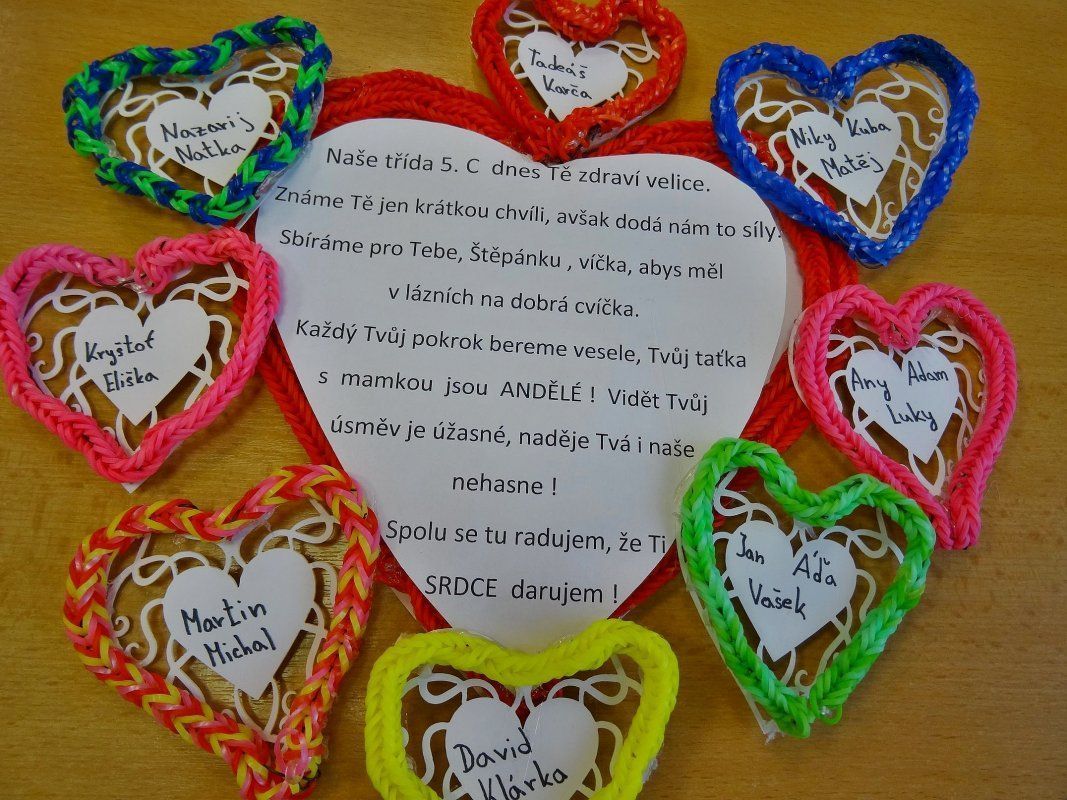 Tadeáš
Karča
Nazarij
Natka
Niky Kuba
Matěj
Naše třída 5. C dnes Tě zdraví velice.
Známe Tě jen krátkou chvíli, avšak dodá nám to síly.
Sbíráme pro Tebe, Štěpánku , víčka, abys měl
v lázních na dobrá cvíčka.
Každý Tvůj pokrok bereme vesele, Tvůj taťka
s mamkou jsou ANDĚLÉ ! Vidět Tvůj
úsměv je úžasné, naděje Tvá i naše
nehasne !
Spolu se tu radujem, že Ti
SRDCE darujem !
Kryštof
Eliška
Any Adam
Luky
Martin
Michal
Jan Áďa
Vašek
David
Klárka